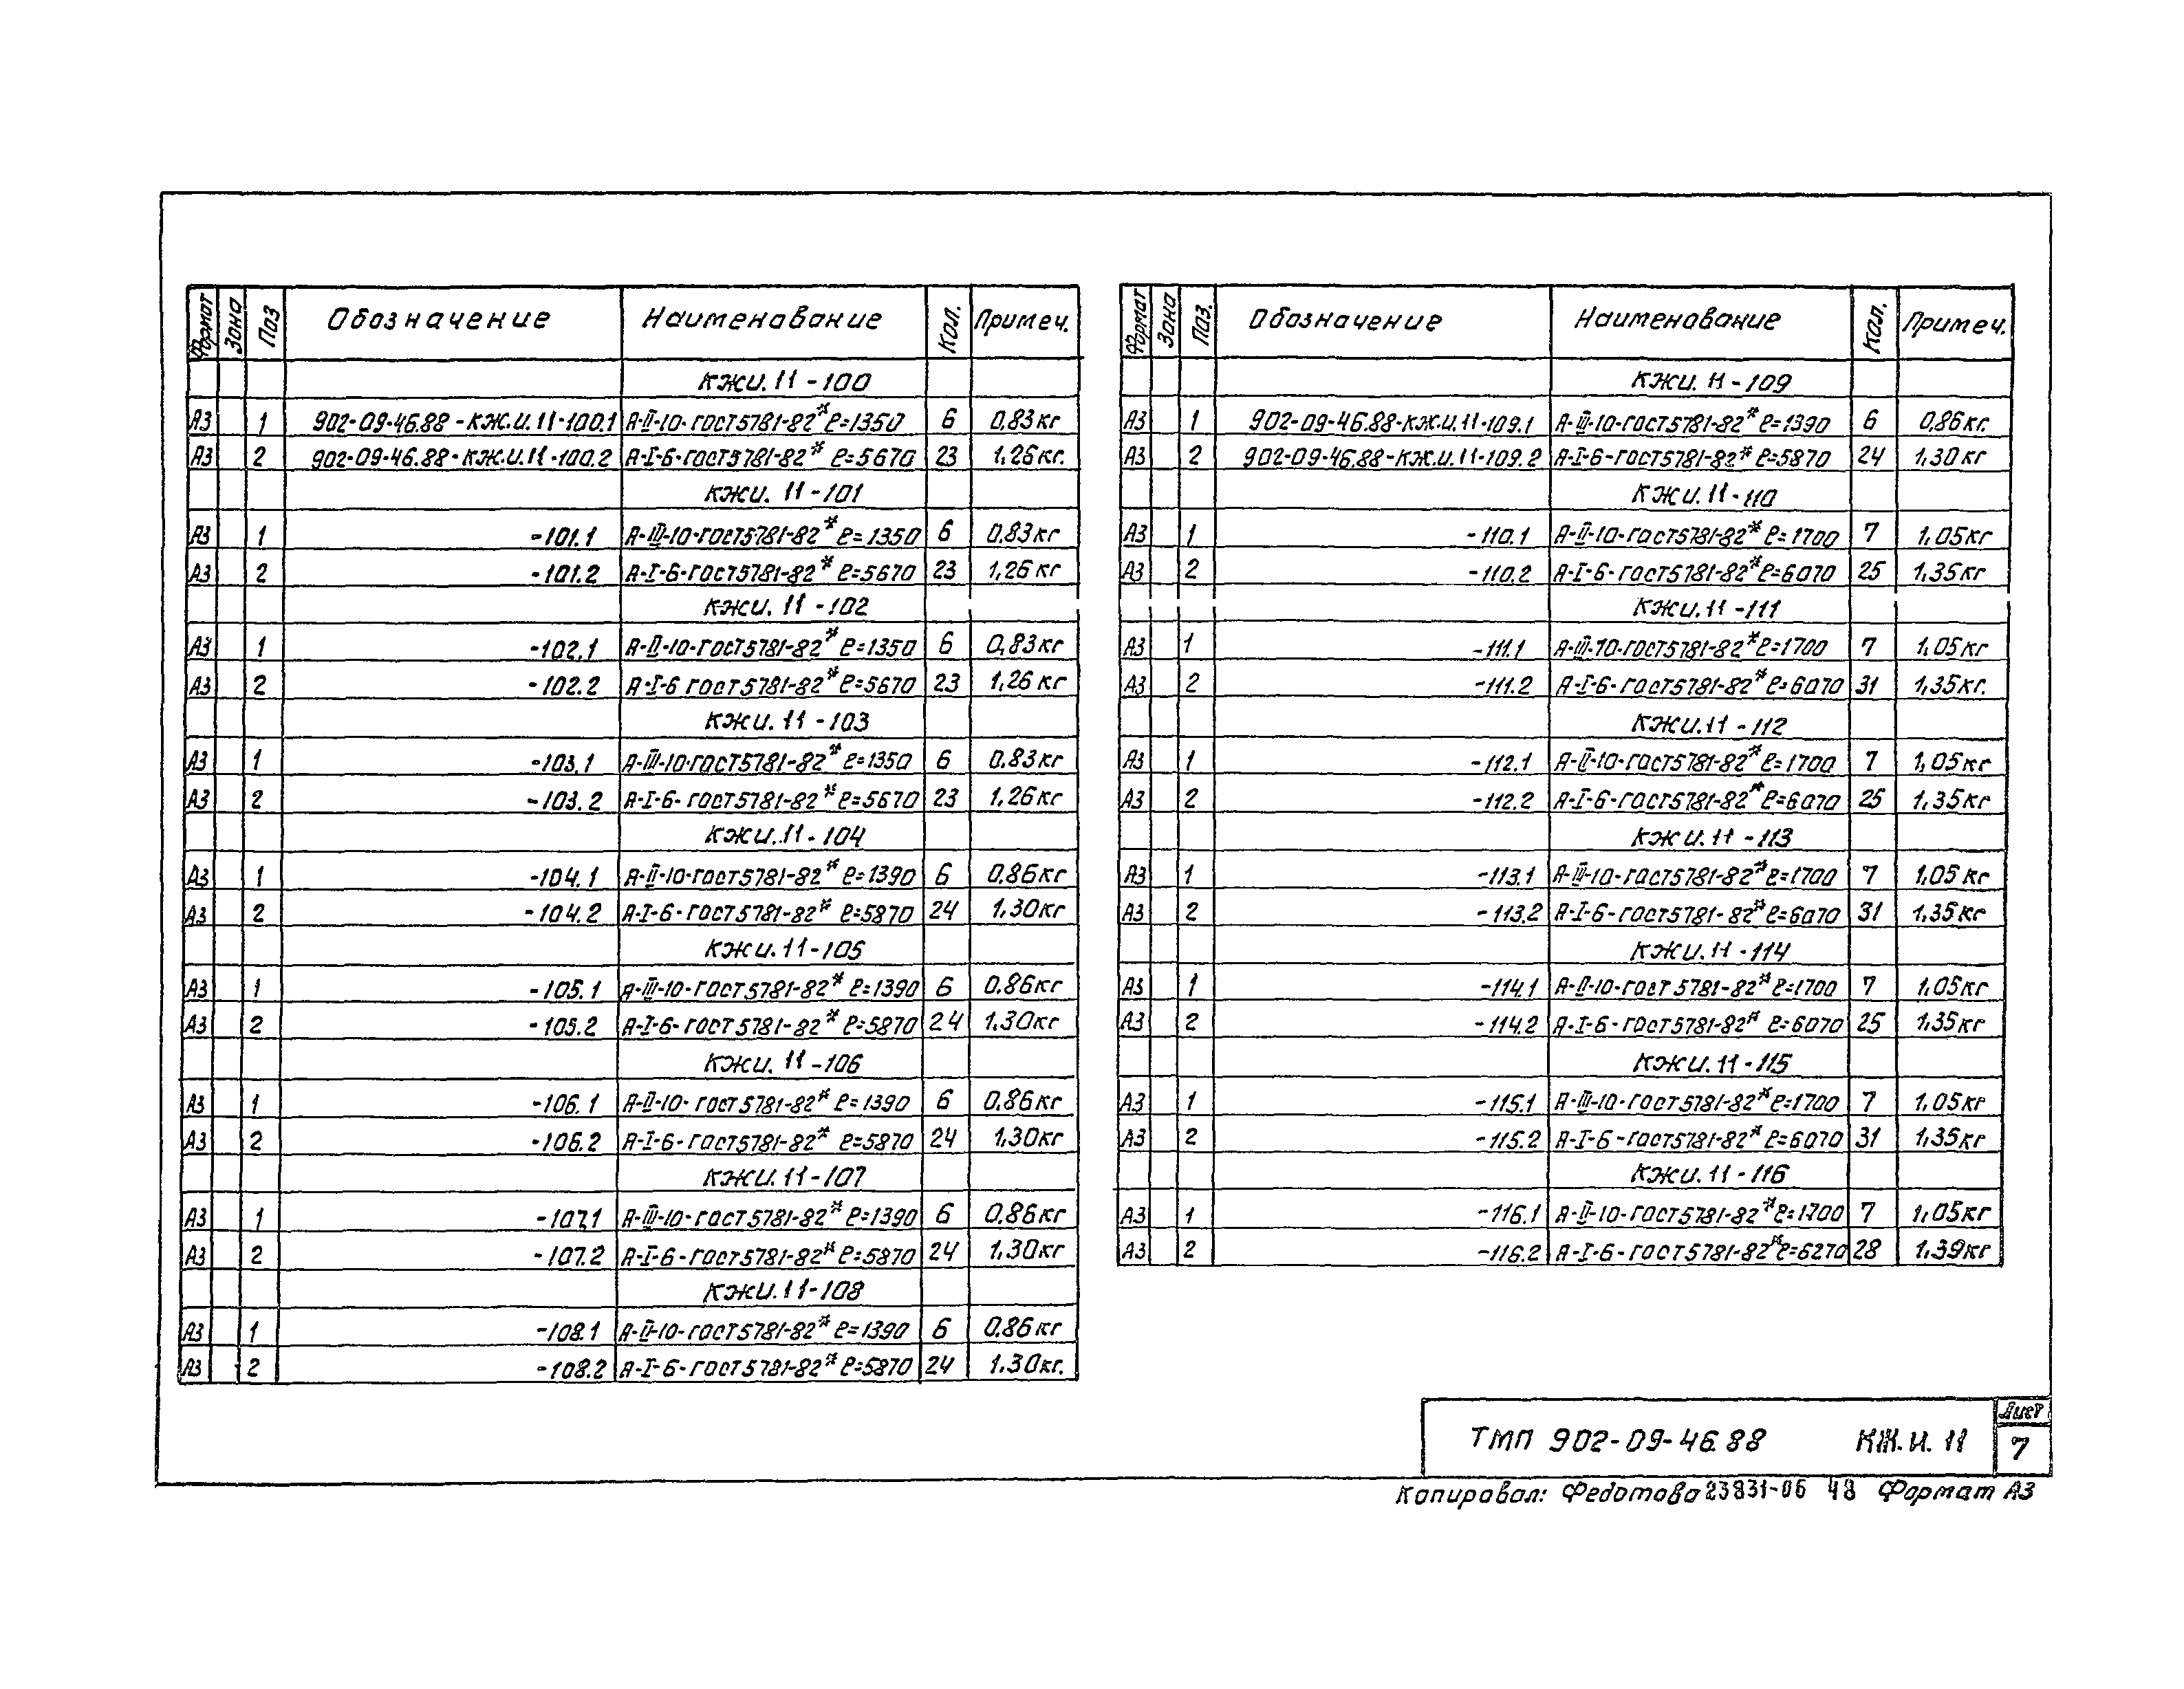 Формат Зона Поз Обозначение Наименование Кол. Примеч.
КЖИ. 11 -100
А3 1 902-09-46.88 -КЖ.И.11-100.1 А-II-10-ГОСТ5781-82* ℓ=1350 6 0,83кг
А3 2 902-09-46.88-КЖ.И.11-100.2 А-I-6-ГОСТ5781-82* ℓ=5670 23 1,26кг.
КЖИ. 11 -101
А3 1 -101.1 А-III-10-ГОСТ5781-82* ℓ=1350 6 0,83кг
А3 2 -101.2 А-I-6-ГОСТ5781-82* ℓ=5670 23 1,26кг
КЖИ. 11 -102
А3 1 -102.1 А-II-10-ГОСТ5781-82* ℓ=1350 6 0,83кг
А3 2 -102.2 А-I-6 ГОСТ5781-82* ℓ=5670 23 1,26 кг
КЖИ. 11 -103
А3 1 -103.1 А-III-10-ГОСТ5781-82* ℓ=1350 6 0.83кг
А3 2 -103.2 А-I-6-ГОСТ5781-82* ℓ=5670 23 1,26кг
КЖИ.11-104
А3 1 -104.1 А-II-10-ГОСТ5781-82* ℓ=1390 6 0.86кг
А3 2 -104.2 А-I-6-ГОСТ5781-82* ℓ=5870 24 1.30кг
КЖИ.11-105
А3 1 -105.1 А-III-10-ГОСТ5781-82* ℓ=1390 6 0.86кг
А3 2 -105.2 А-I-6-ГОСТ5781-82* ℓ=5870 24 1.30кг
КЖИ. 11 -106
А3 1 -106.1 А-II-10-ГОСТ5781-82* ℓ=1390 6 0.86кг
А3 2 -106.2 А-I-6-ГОСТ5781-82* ℓ=5870 24 1,30кг
КЖИ.11-107
А3 1 -107.1 А-III-10-ГОСТ5781-82* ℓ=1390 6 0.86кг
А3 2 -107.2 А-I-6-ГОСТ5781-82* ℓ=5870 24 1.30кг
КЖИ.11-108
А3 1 -108.1 А-II-10-ГОСТ5781-82* ℓ=1390 6 0.86кг
А3 2 -108.2 А-I-6-ГОСТ5781-82* ℓ=5870 24 1.30кг.
Формат Зона Поз. Обозначение Наименование Кол. Примеч.
КЖИ. 11 -109
А3 1 902-09-46.88-КЖ.И.11-109.1 А-III-10-ГОСТ5781-82* ℓ=1390 6 0,86кг.
А3 2 902-09-46.88-КЖ.И.11-109.2 А-I-6-ГОСТ5781-82* ℓ=5870 24 1,30кг
КЖИ.11-110
А3 1 -110.1 А-II-10-ГОСТ5781-82* ℓ=1700 7 1,05кг
А3 2 -110.2 А-I-6-ГОСТ5781-82* ℓ=6070 25 1,35кг
КЖИ.11-111
А3 1 -111.1 А-III-10-ГОСТ5781-82* ℓ=1700 7 1,05кг
А3 2 -111.2 А-I-6-ГОСТ5781-82* ℓ=6070 31 1,35кг.
КЖИ.11-112
А3 1 -112.1 А-II-10-ГОСТ5781-82* ℓ=1700 7 1,05кг
А3 2 -112.2 А-I-6-ГОСТ5781-82* ℓ=6070 25 1.35кг
КЖИ.11-113
А3 1 -113.1 А-III-10-ГОСТ5781-82* ℓ=1700 7 1,05кг
А3 2 -113.2 А-I-6-ГОСТ5781-82* ℓ=6070 31 1,35кг
КЖИ.11-114
А3 1 -114.1 А-II-10-ГОСТ5781-82* ℓ=1700 7 1,05кг
А3 2 -114.2 А-I-6-ГОСТ5781-82* ℓ=6070 25 1,35кг
КЖИ.11-115
А3 1 -115.1 А-III-10-ГОСТ5781-82* ℓ=1700 7 1,05кг
А3 2 -115.2 А-I-6-ГОСТ5781-82* ℓ=6070 31 1,35кг
КЖИ.11-116
А3 1 -116.1 А-II-10-ГОСТ5781-82* ℓ=1700 7 1,05кг
А3 2 -116.2 А-I-6-ГОСТ5781-82* ℓ=6270 28 1.39кг
ТМП 902-09-46.88 КЖ.И. 11
Лист
7
Копировал: Федотова 23831-06 48 Формат А3